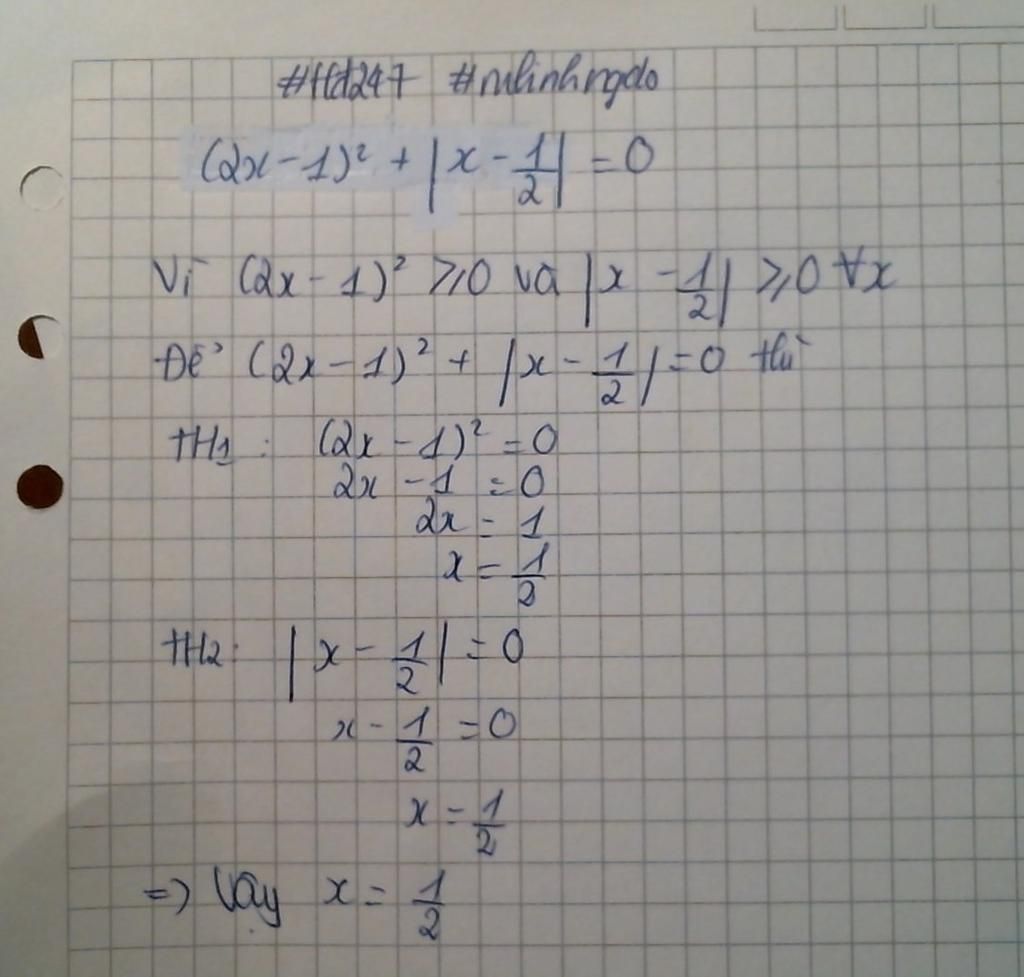 #Hd247 #mlinhngdo
(2x-1)² + |x - 1/2| = 0
Vì (2x-1)² ≥ 0 và |x - 1/2| ≥ 0 ∀x
Để (2x-1)² + |x - 1/2| = 0 thì
TH1: (2x-1)² = 0
2x - 1 = 0
2x = 1
x = 1/2
TH2: |x - 1/2| = 0
x - 1/2 = 0
x = 1/2
=> Vậy x = 1/2